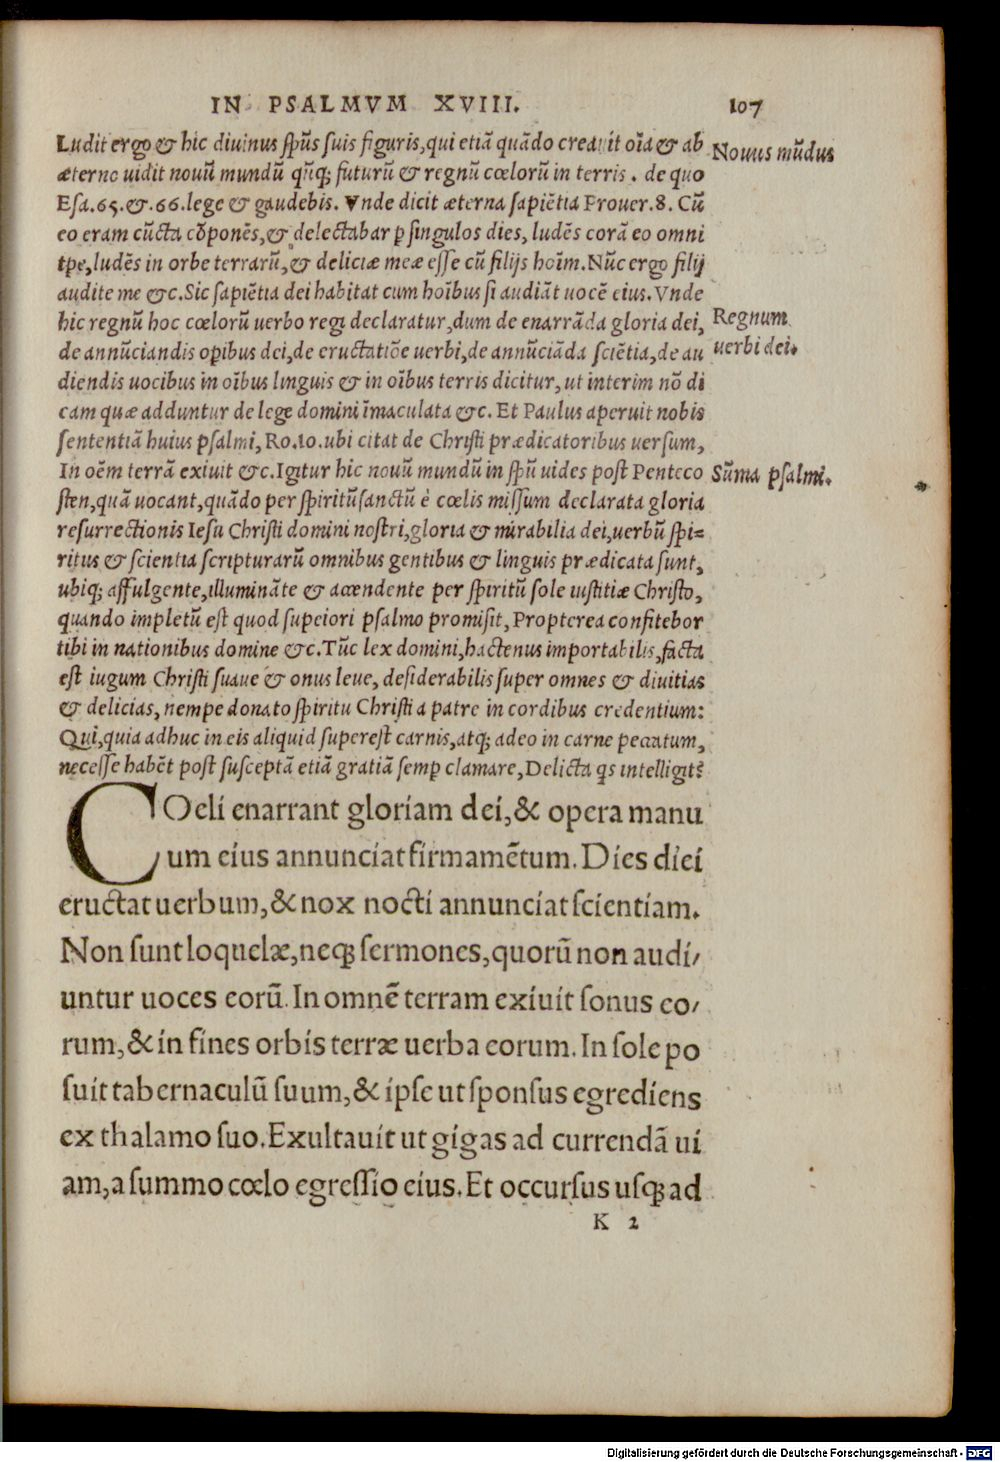 IN PSALMVM XVIII. 107
Ludit ergo & hic diuinus spũs suis figuris, qui etiã quãdo creauit oĩa & ab
Nouus mũdus
æterno uidit nouũ mundũ qñq; futurũ & regnũ cœlorũ in terris. de quo
Esa.65.&.66.lege & gaudebis. Vnde dicit æterna sapiẽtia Prouer.8. Cũ
eo eram cũcta cõponẽs, & delectabar p singulos dies, ludẽs corã eo omni
tpe, ludẽs in orbe terrarũ, & deliciæ meæ esse cũ filijs hoĩm. Nũc ergo filij
audite me &c. Sic sapiẽtia dei habitat cum hoĩbus si audiãt uocẽ eius. Vnde
hic regnũ hoc cœlorũ uerbo regi declaratur, dum de enarrãda gloria dei,
Regnum
de annũciandis opibus dei, de eructatiõe uerbi, de annũciãda sciẽtia, de au
uerbi dei.
diendis uocibus in oĩbus linguis & in oĩbus terris dicitur, ut interim nõ di
cam quæ adduntur de lege domini ĩmaculata &c. Et Paulus aperuit nobis
sententiã huius psalmi, Ro.10. ubi citat de Christi prædicatoribus uersum,
In oẽm terrã exiuit &c. Igitur hic nouũ mundũ in spũ uides post Penteco
Sũma psalmi.
sten, quã uocant, quãdo per spiritũsanctũ è cœlis missum declarata gloria
resurrectionis Iesu Christi domini nostri, gloria & mirabilia dei, uerbũ spi=
ritus & scientia scripturarũ omnibus gentibus & linguis prædicata sunt,
ubiq; affulgente, illuminãte & accendente per spiritũ sole iustitiæ Christo,
quando impletũ est quod supeiori psalmo promisit, Propterea confitebor
tibi in nationibus domine &c. Tũc lex domini, hactenus importabilis, facta
est iugum Christi suaue & onus leue, desiderabilis super omnes & diuitias
& delicias, nempe donato spiritu Christi a patre in cordibus credentium:
Qui, quia adhuc in eis aliquid superest carnis, atq; adeo in carne peccatum,
necesse habẽt post susceptã etiã gratiã semp clamare, Delicta qs intelligit?
COeli enarrant gloriam dei, & opera manu
um eius annunciat firmamẽtum. Dies diei
eructat uerbum, & nox nocti annunciat scientiam.
Non sunt loquelæ, neq; sermones, quorũ non audi/
untur uoces eorũ. In omnẽ terram exiuit sonus eo/
rum, & in fines orbis terræ uerba eorum. In sole po
suit tabernaculũ suum, & ipse ut sponsus egrediens
ex thalamo suo. Exultauit ut gigas ad currendã ui
am, a summo cœlo egressio eius. Et occursus usq; ad
K 2
Digitalisierung gefördert durch die Deutsche Forschungsgemeinschaft - DFG